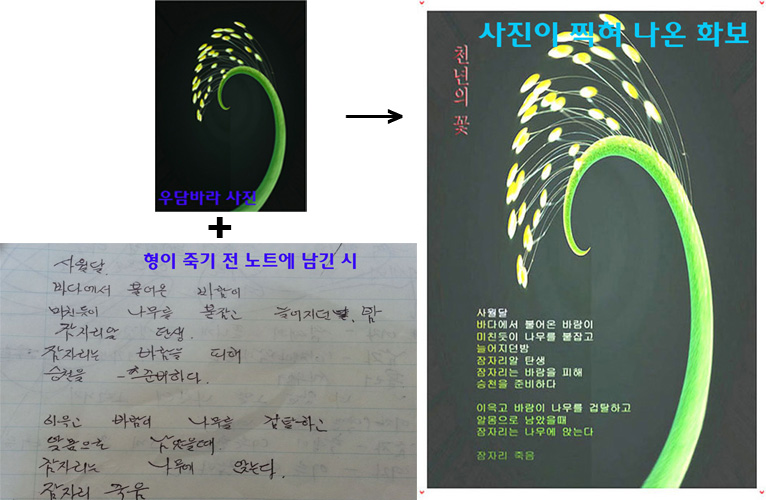 우담바라 사진
형이 죽기 전 노트에 남긴 시
사월달
바다에서 불어온 바람이
미친듯이 나무를 붙잡고 늘어지던 밤
잠자리알 탄생.
잠자리는 바람을 피해
승천을 준비하다.
이윽고 바람이 나무를 겁탈하고
알몸으로 남았을때
잠자리는 나무에 앉는다.
잠자리 죽음
사진이 찍혀 나온 화보
천년의 꽃
사월달
바다에서 불어온 바람이
미친듯이 나무를 붙잡고
늘어지던밤
잠자리알 탄생
잠자리는 바람을 피해
승천을 준비하다
이윽고 바람이 나무를 겁탈하고
알몸으로 남았을때
잠자리는 나무에 앉는다
잠자리 죽음